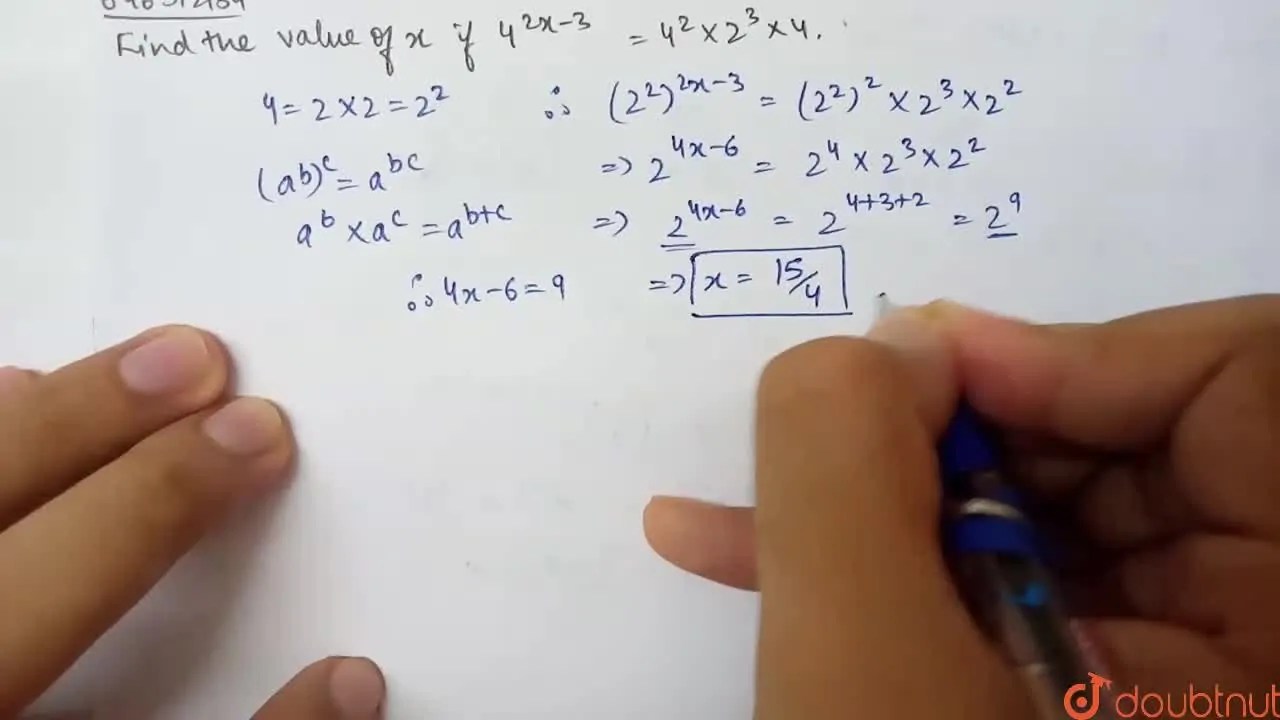 Find the value of x if 4^{2x-3} = 4² × 2³ × 4.
4 = 2 × 2 = 2² ∴ (2²)^{2x-3} = (2²)² × 2³ × 2²
(a^b)^c = a^{bc} => 2^{4x-6} = 2⁴ × 2³ × 2²
a^b × a^c = a^{b+c} => 2^{4x-6} = 2^{4+3+2} = 2⁹
∴ 4x-6 = 9 => x = 15/4
doubtnut